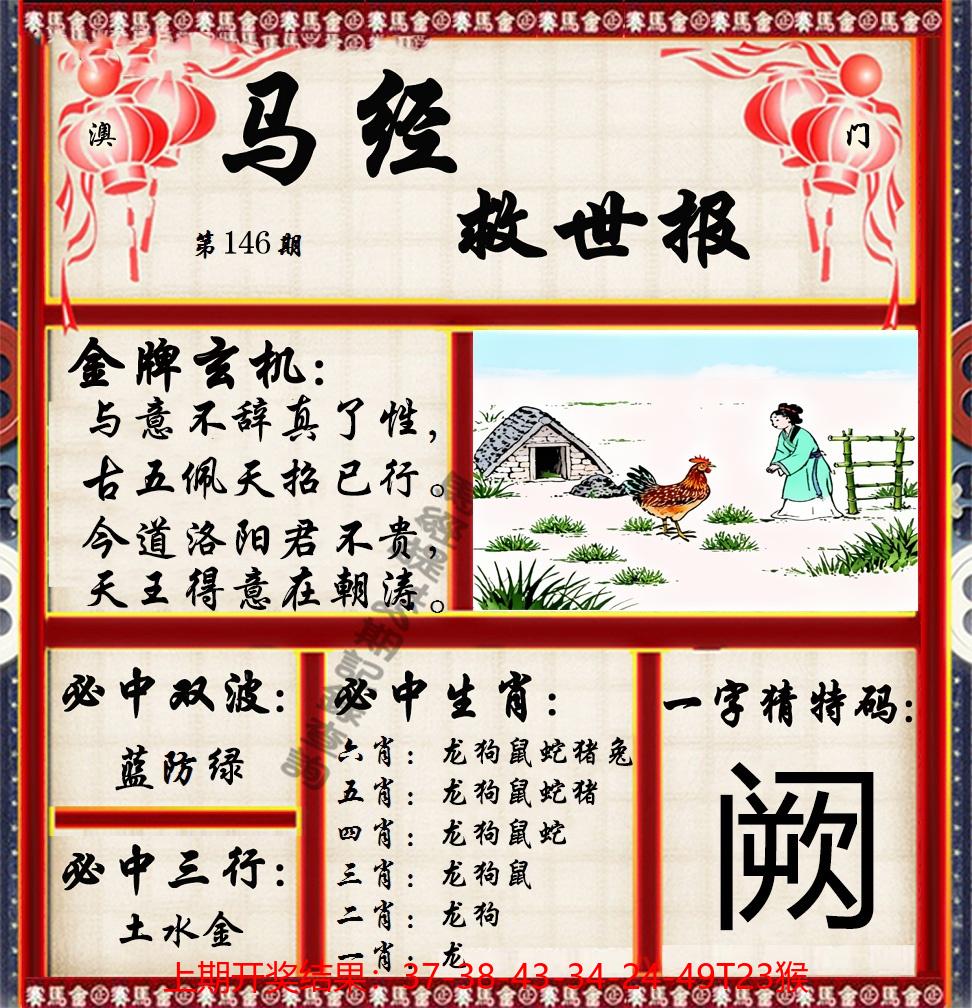 馬金㊣ 賽馬金㊣ 賽馬金㊣ 賽馬金㊣
澳
门
马经
救世报
第146期
金牌玄机：
与意不辞真了性，
古五佩天招已行。
今道洛阳君不贵，
天王得意在朝涛。
必中双波：
蓝防绿
必中三行：
土水金
必中生肖：
六肖： 龙狗鼠蛇猪兔
五肖： 龙狗鼠蛇猪
四肖： 龙狗鼠蛇
三肖： 龙狗鼠
二肖： 龙狗
一肖： 龙
一字猜特码：
阙
上期开奖结果：37-38-43-34-24-49T23猴